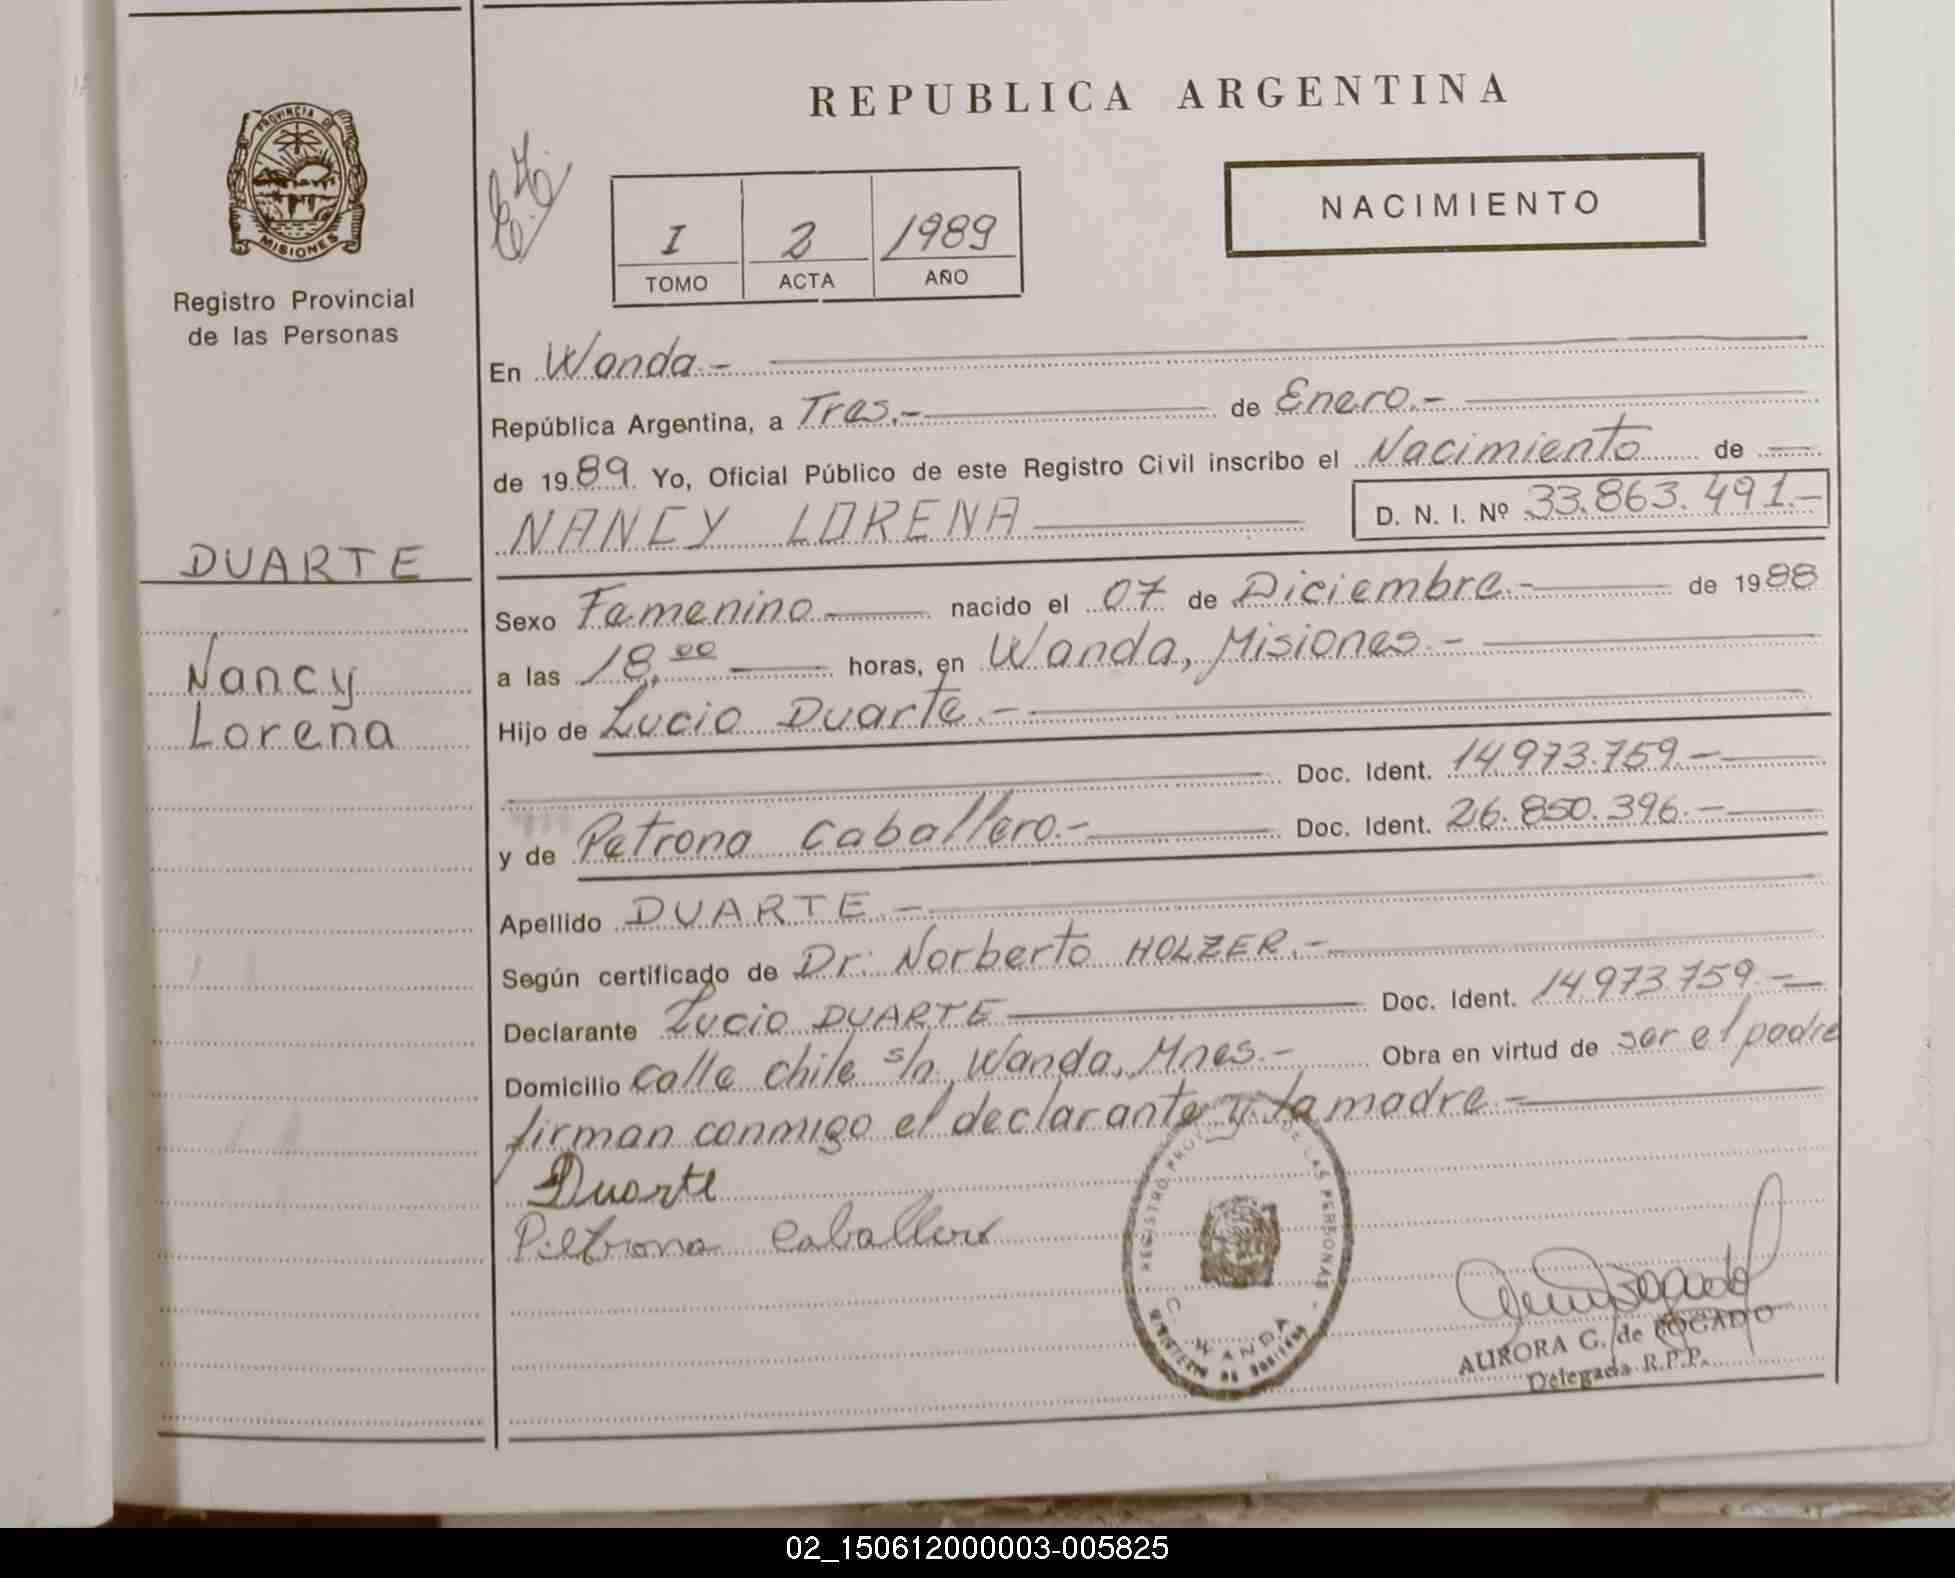 REPUBLICA ARGENTINA
PROVINCIA DE
MISIONES
Registro Provincial
de las Personas
NACIMIENTO
I 2 1989
TOMO ACTA AÑO
En Wanda.-
República Argentina, a Tres.- de Enero.-
de 1989 Yo, Oficial Público de este Registro Civil inscribo el Nacimiento de
NANCY LORENA D. N. I. Nº 33.863.491.-
DUARTE
Nancy
Lorena
Sexo Femenino nacido el 07 de Diciembre.- de 1988
a las 18,00 horas, en Wanda, Misiones.-
Hijo de Lucio Duarte.-
Doc. Ident. 14.973.759.-
y de Petrona Caballero.- Doc. Ident. 26.850.396.-
Apellido DUARTE.-
Según certificado de Dr. Norberto HOLZER.-
Declarante Lucio DUARTE Doc. Ident. 14.973.759.-
Domicilio calle chile s/n, Wanda, Mnes.- Obra en virtud de ser el padre
firman conmigo el declarante y la madre.-
Duarte
Pietrona Caballero
REGISTRO PROVINCIAL DE LAS PERSONAS
WANDA
AURORA G. de BOGADO
Delegada R.P.P.
02_150612000003-005825